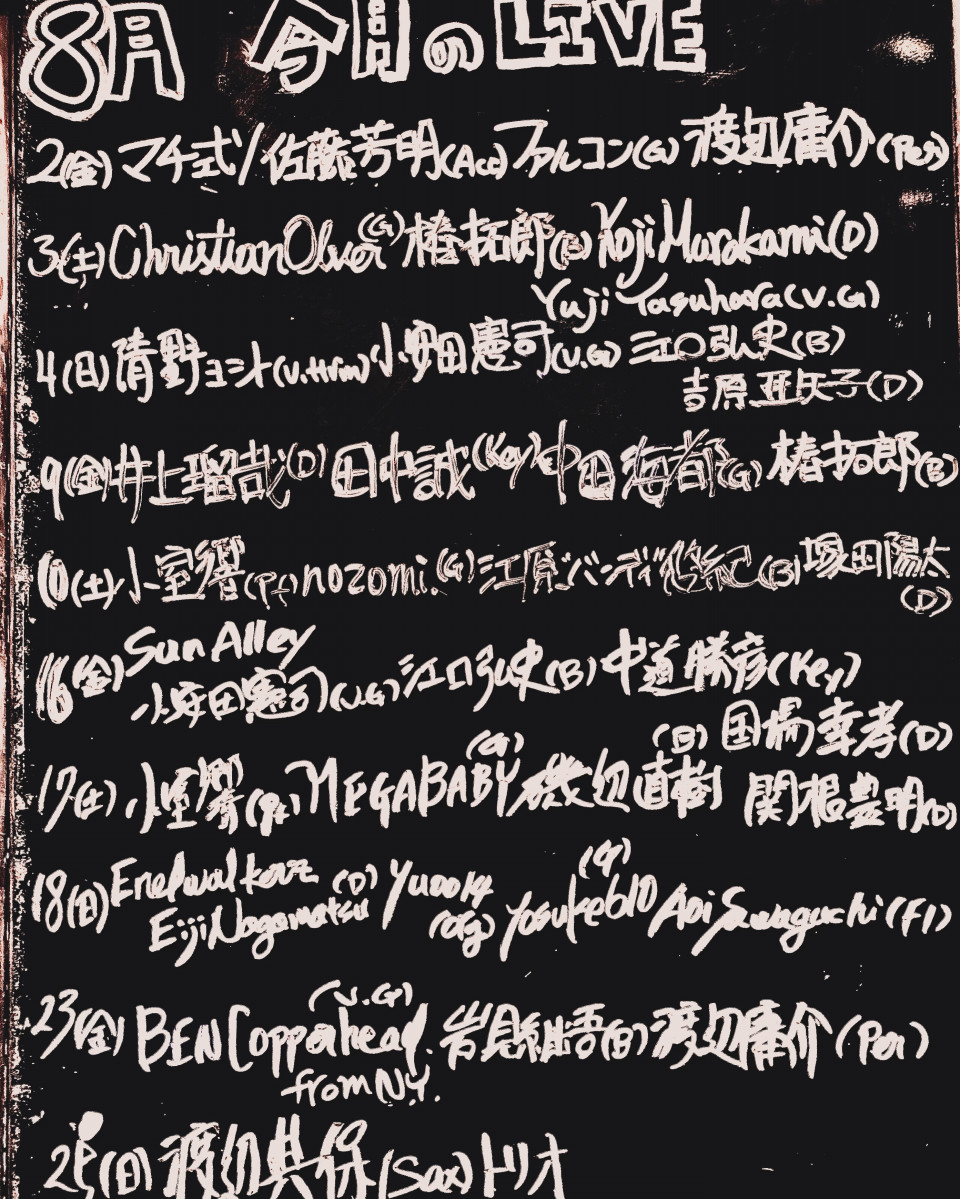 8月 今月の LIVE
2(金) マチ式/佐藤芳明(Acc) ファルコン(G) 渡辺庸介(Per)
3(土) Christian Oliver(G) 椿拓郎(B) Koji Murakami(D)
Yuji Yasuhara(V.G)
4(日) 青野ヨシト(V.Hrm) 小安田憲司(V.G) 江口弘史(B)
吉原亜矢子(D)
9(金) 井上瑠哉(D) 田中誠(Key) 中田海都(G) 椿拓郎(B)
10(土) 小室響(Pf) nozomi.(G) 江原バンディ(B) 塚田陽太
(D)
16(金) Sun Alley
小安田憲司(V.G) 江口弘史(B) 中道勝彦(Key)
国場幸孝(D)
17(土) 小室響(Pf) MEGABABY(G) 磯辺直樹(B) 関根豊明(D)
18(日) Eiji Nagamatsu(D) (Org) Yosuke610(G) Aoi Sawaguchi(Fl)
23(金) BEN Copperhead(V.G) 岩見継吾(B) 渡辺庸介(Per)
from NY.
25(日) 渡辺典保(Sax)トリオ